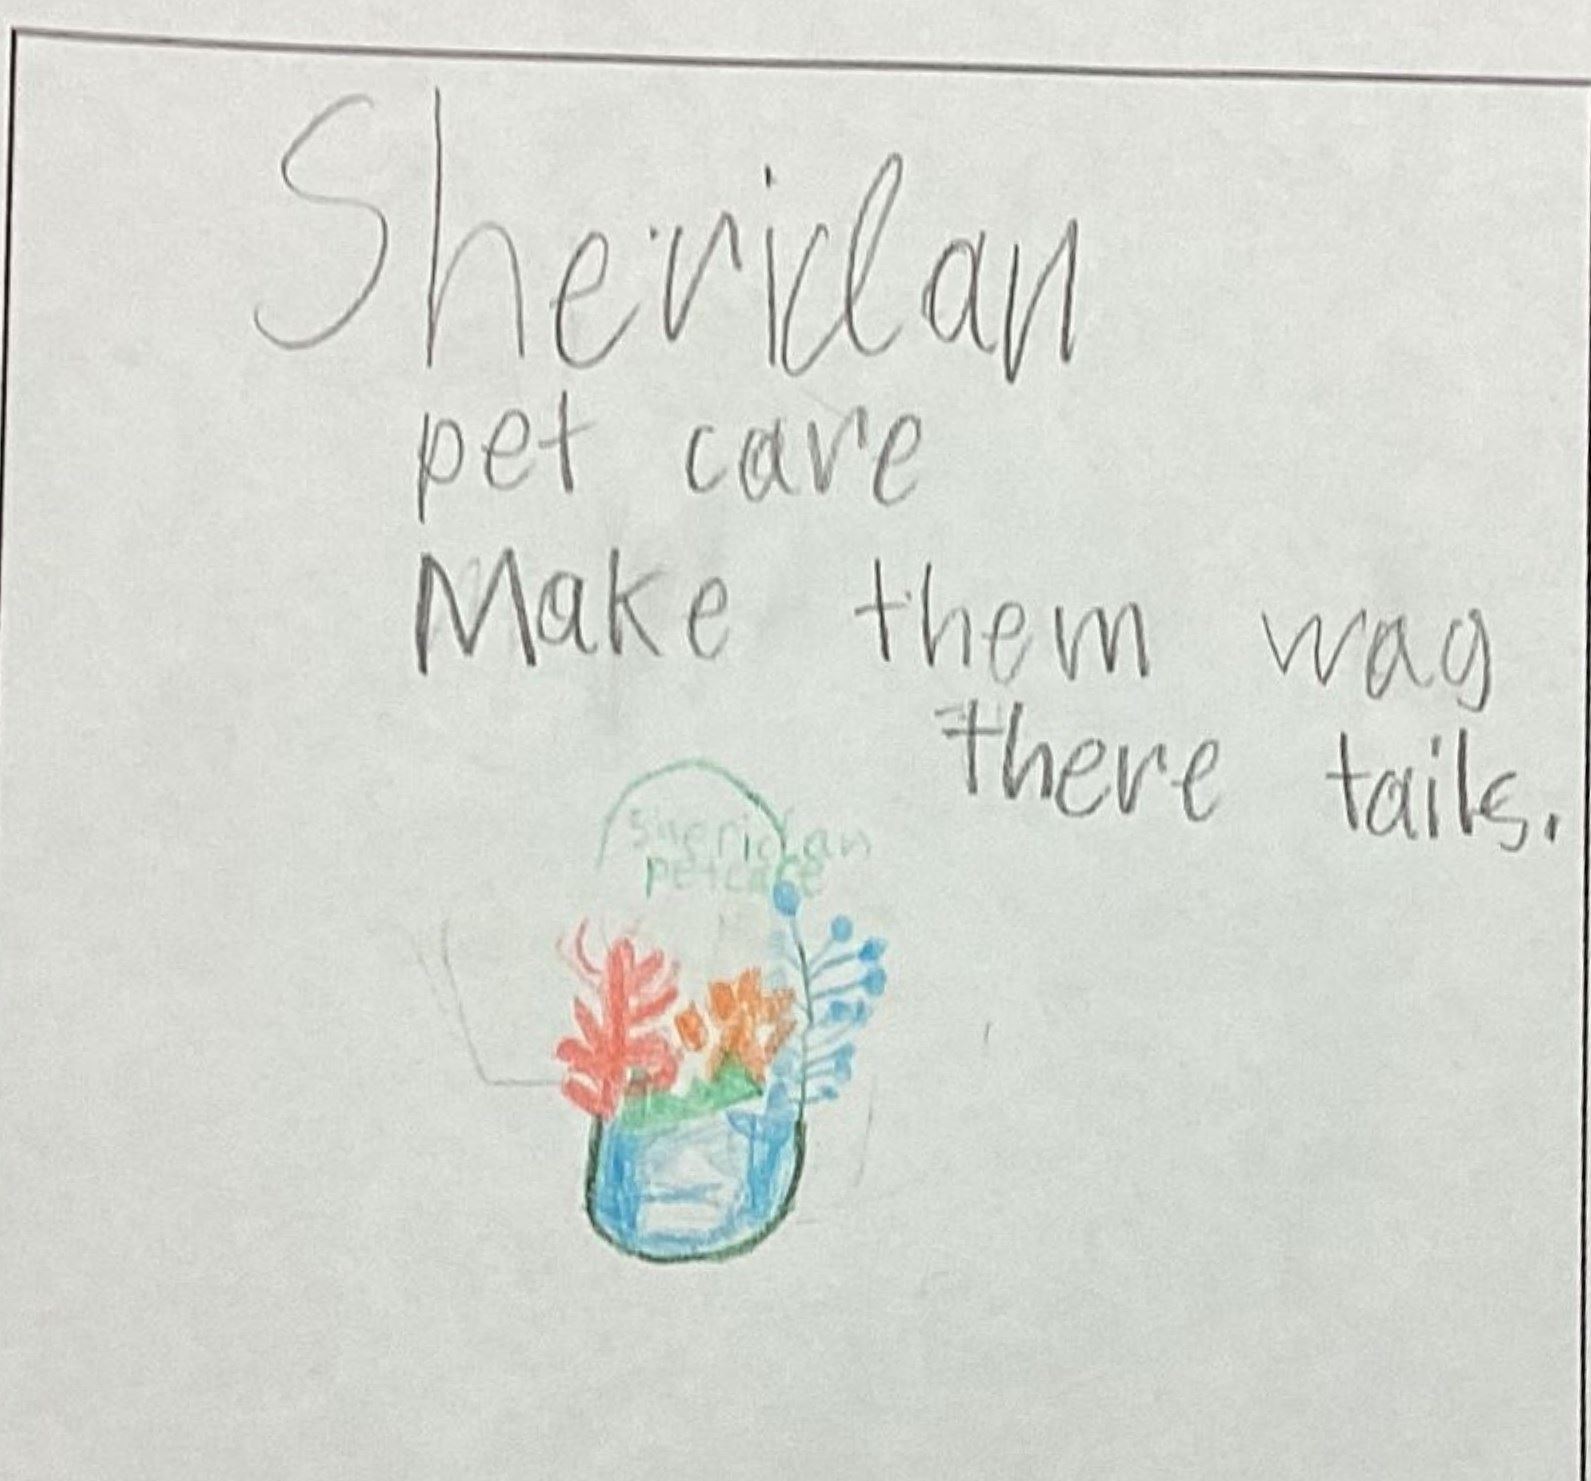 Sheridan
pet care
Make them wag
there tails.
Sheridan
petcare